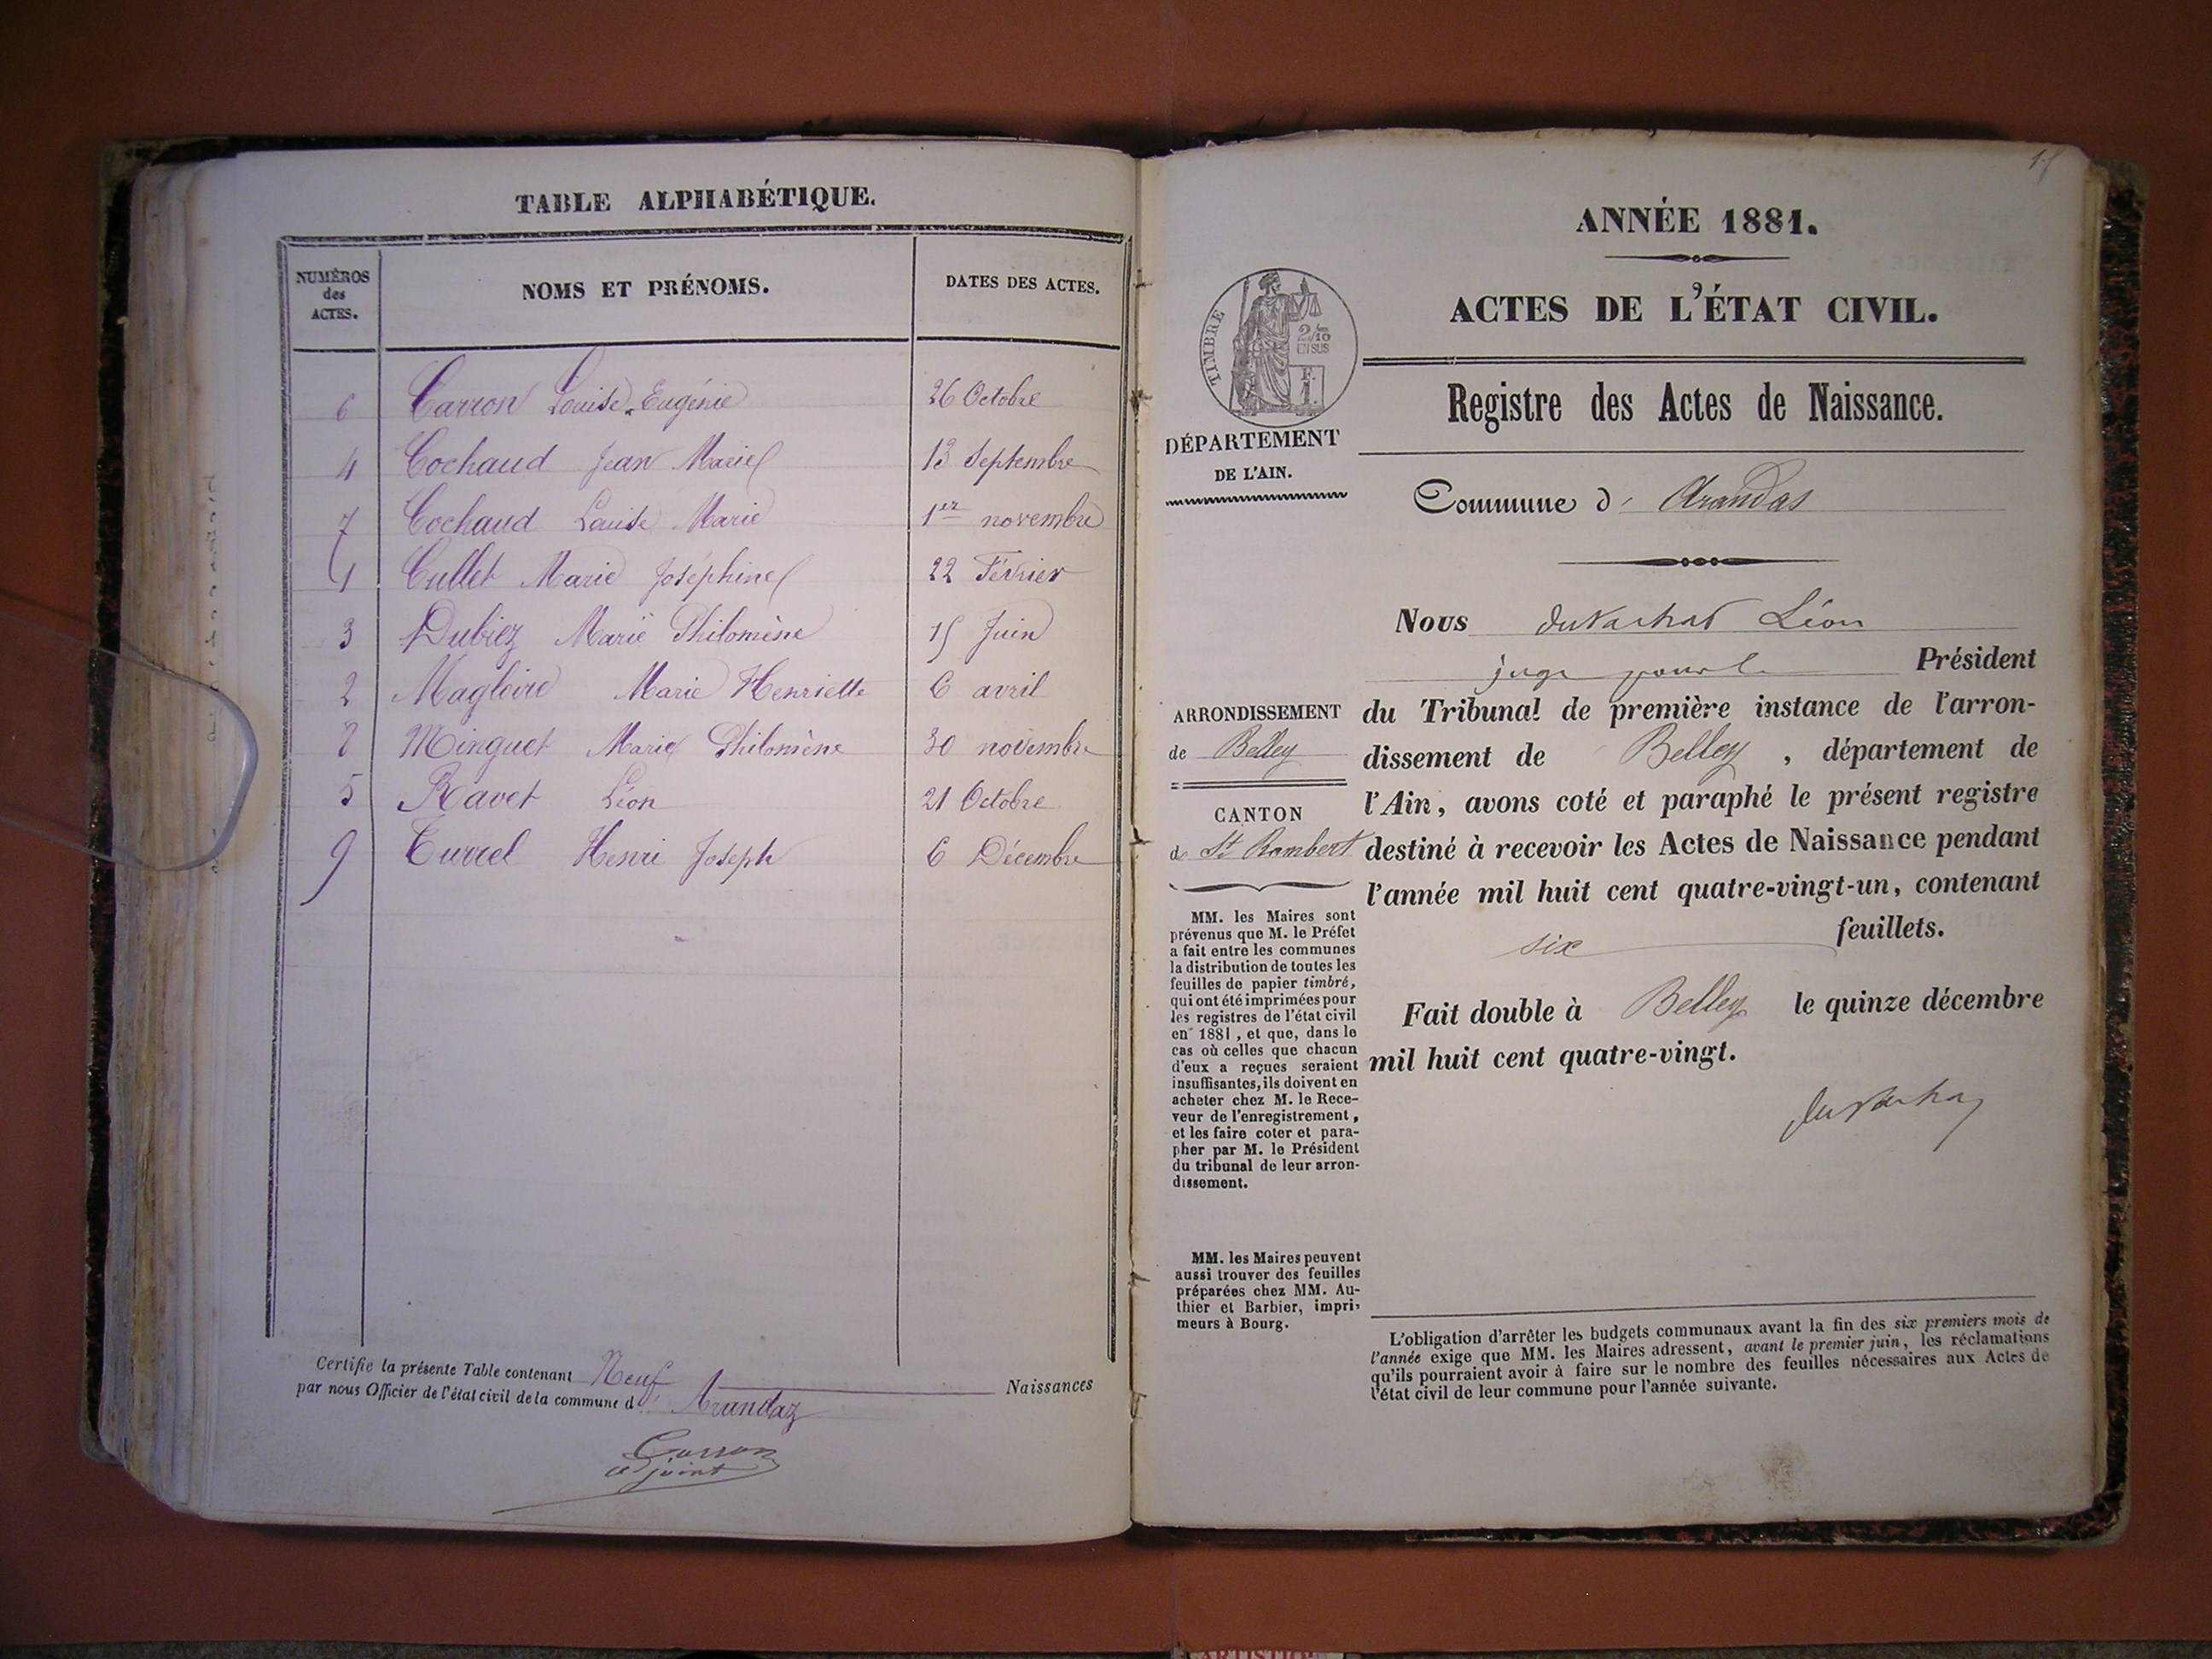 TABLE ALPHABÉTIQUE.
NUMÉROS des ACTES. NOMS ET PRÉNOMS. DATES DES ACTES.
6 Carron Louise Eugénie 26 Octobre
4 Cochaud Jean Marie 13 Septembre
7 Cochaud Louise Marie 1er novembre
1 Cullet Marie Joséphine 22 Février
3 Dubiez Marie Philomène 15 Juin
2 Magloire Marie Henriette 6 avril
8 Minguet Marie Philomène 30 novembre
5 Ravet Léon 21 Octobre
9 Turrel Henri Joseph 6 Décembre
Certifie la présente Table contenant Neuf Naissances
par nous Officier de l'état civil de la commune d' Arandaz
Carron
adjoint
15
ANNÉE 1881.
ACTES DE L'ÉTAT CIVIL.
TIMBRE
2/10
EN SUS
F.
1.
DÉPARTEMENT
DE L'AIN.
Registre des Actes de Naissance.
Commune d' Arandas
ARRONDISSEMENT
de Belley
CANTON
de St Rambert
MM. les Maires sont
prévenus que M. le Préfet
a fait entre les communes
la distribution de toutes les
feuilles de papier timbré,
qui ont été imprimées pour
les registres de l'état civil
en 1881, et que, dans le
cas où celles que chacun
d'eux a reçues seraient
insuffisantes, ils doivent en
acheter chez M. le Rece-
veur de l'enregistrement,
et les faire coter et para-
pher par M. le Président
du tribunal de leur arron-
dissement.
MM. les Maires peuvent
aussi trouver des feuilles
préparées chez MM. Au-
thier et Barbier, impri-
meurs à Bourg.
Nous Léon
juge pour le Président
du Tribunal de première instance de l'arron-
dissement de Belley, département de
l'Ain, avons coté et paraphé le présent registre
destiné à recevoir les Actes de Naissance pendant
l'année mil huit cent quatre-vingt-un, contenant
six feuillets.
Fait double à Belley le quinze décembre
mil huit cent quatre-vingt.
L'obligation d'arrêter les budgets communaux avant la fin des six premiers mois de
l'année exige que MM. les Maires adressent, avant le premier juin, les réclamations
qu'ils pourraient avoir à faire sur le nombre des feuilles nécessaires aux Actes de
l'état civil de leur commune pour l'année suivante.